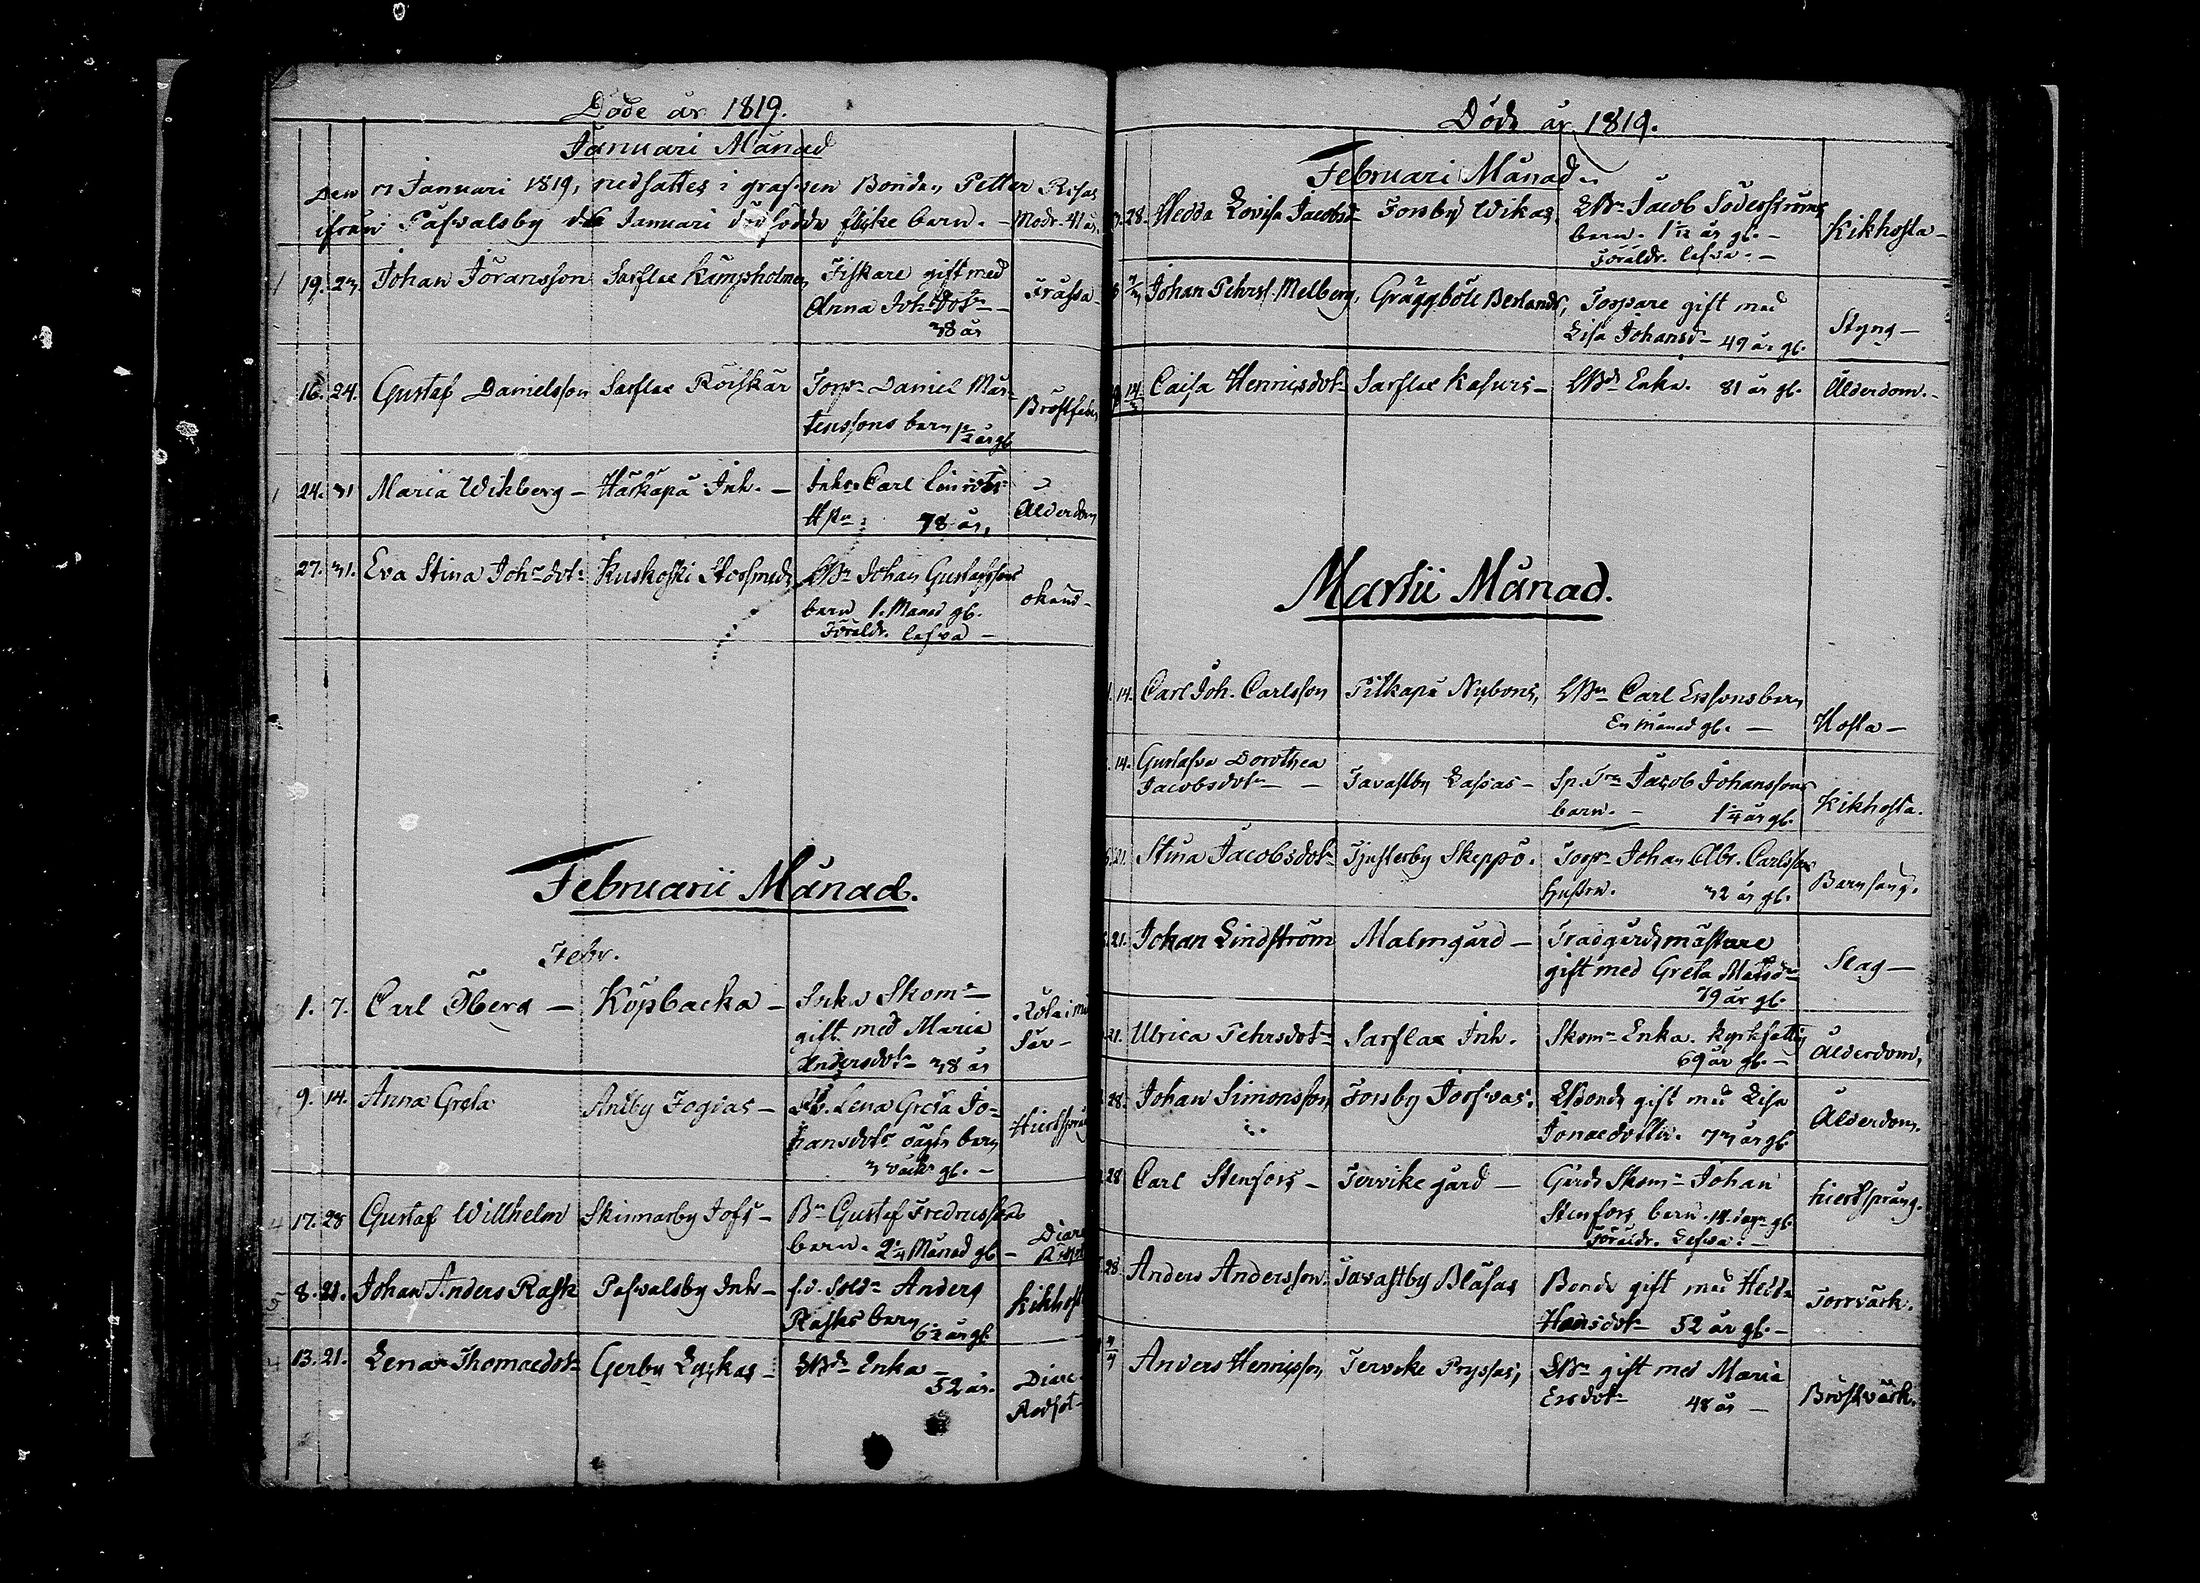 Döde år 1819.
Januari Månad
Den Januari 1819, nedsattes i grafven Bonden Petter Risas
ifrån Påfvalsby d 6 Januari dödfödda flicke barn. - Modr. 41 år.
19. 23 Johan Jöransson Sarflax Kampsholmen Fiskare gift med
Anna Joh: dotr - Frässa -
38 år
16. 24. Gustaf Danielsson Sarflax Röifkär Torp: Daniel Mår-
tenssons barn 1 1/2 år gl Bröstfeber
24. 31 Maria Wikberg - Härkäpä Inh. - Inhs. Carl
78 år, Ålderdom
27. 31. Eva Stina Joh: dotr Kuskoski Storsmeds LBn Johan Gustafssons
barn 1. Månad gl. okänd -
Föräldr. lefva -
Februarii Månad.
Febr.
1. 7. Carl Öberg - Köpbacka - Inhs Skomr -
gift med Maria
Andersdotr 38 år
9. 14. Anna Greta Andby Fogias - Lena Greta Jo-
hansdotr oägta barn Hiertsprång
3 veckr gl. -
17. 28 Gustaf Willhelm Skinnarby Jofs - Bn Gustaf Fredricssons
barn. 2 1/4 Månad gl - Diare
8. 21. Johan Anders Rask Pafvalsby Inh - f.d. Soldn Anders
Rasks barn 6 1/2 år gl. Kikhosta
13. 21. Lena Thomaedotr Gerby Lyckas - LBds Enka -
52 år. Diare.
Rodsot -
Döde år 1819.
Februari Månad.
28. Hedda Lovisa Jacobsd- Forsby Wikas. LBn Jacob Söderströms
barn. 1 1/12 år gl. - Kikhosta -
Föräldr. lefva. -
7/3 Johan Pehrs: Melberg, Gräggböle Berlands, Torpare gift med
Lisa Johansd - 49 år gl. Styng -
14/3 Caisa Henricsdotr Sarflax Kasuris - LBds Enka. 81 år gl. Ålderdom. -
Martii Månad.
14. Carl Joh. Carlsson Pitkäpä Nybons, LBn Carl Erssons barn
En månad gl. - Hosta -
14. Gustafva Dorothea
Jacobsdotr - - Tavastby Lassas - Sp. Trn Jacob Johanssons
barn. - 1 1/4 år gl. Kikhosta.
21. Stina Jacobsdotr Tjusterby Skeppö. Torpn Johan Abr. Carlssons
hustru. 32 år gl. Barnsäng.
21. Johan Lindström Malmgård - Trädgårdsmästare
gift med Greta Matsdr Slag -
79 år gl.
21. Ulrica Pehrsdotr Sarflax Inh. Skomr Enka. Kyrksättig
69 år gl. - Ålderdom,
28. Johan Simonsson Forsby Jorfvas. LBonde gift med Lisa
Jonaedotter. 73 år gl. Ålderdom.
28 Carl Stenfors - Tervike gård - Gårds Skomr Johan
Stenfors barn. 14 dagr gl. hiertsprång.
Föräldr. Lefva.
28. Anders Andersson. Tavastby Blåsas Bonde gift med Hedda
Hansdotr 52 år gl. - Torrvärk.
4/4 Anders Henricsson Tervike Pryssas, LBn gift med Maria
Ersdotr 48 år - Bröstvärk.